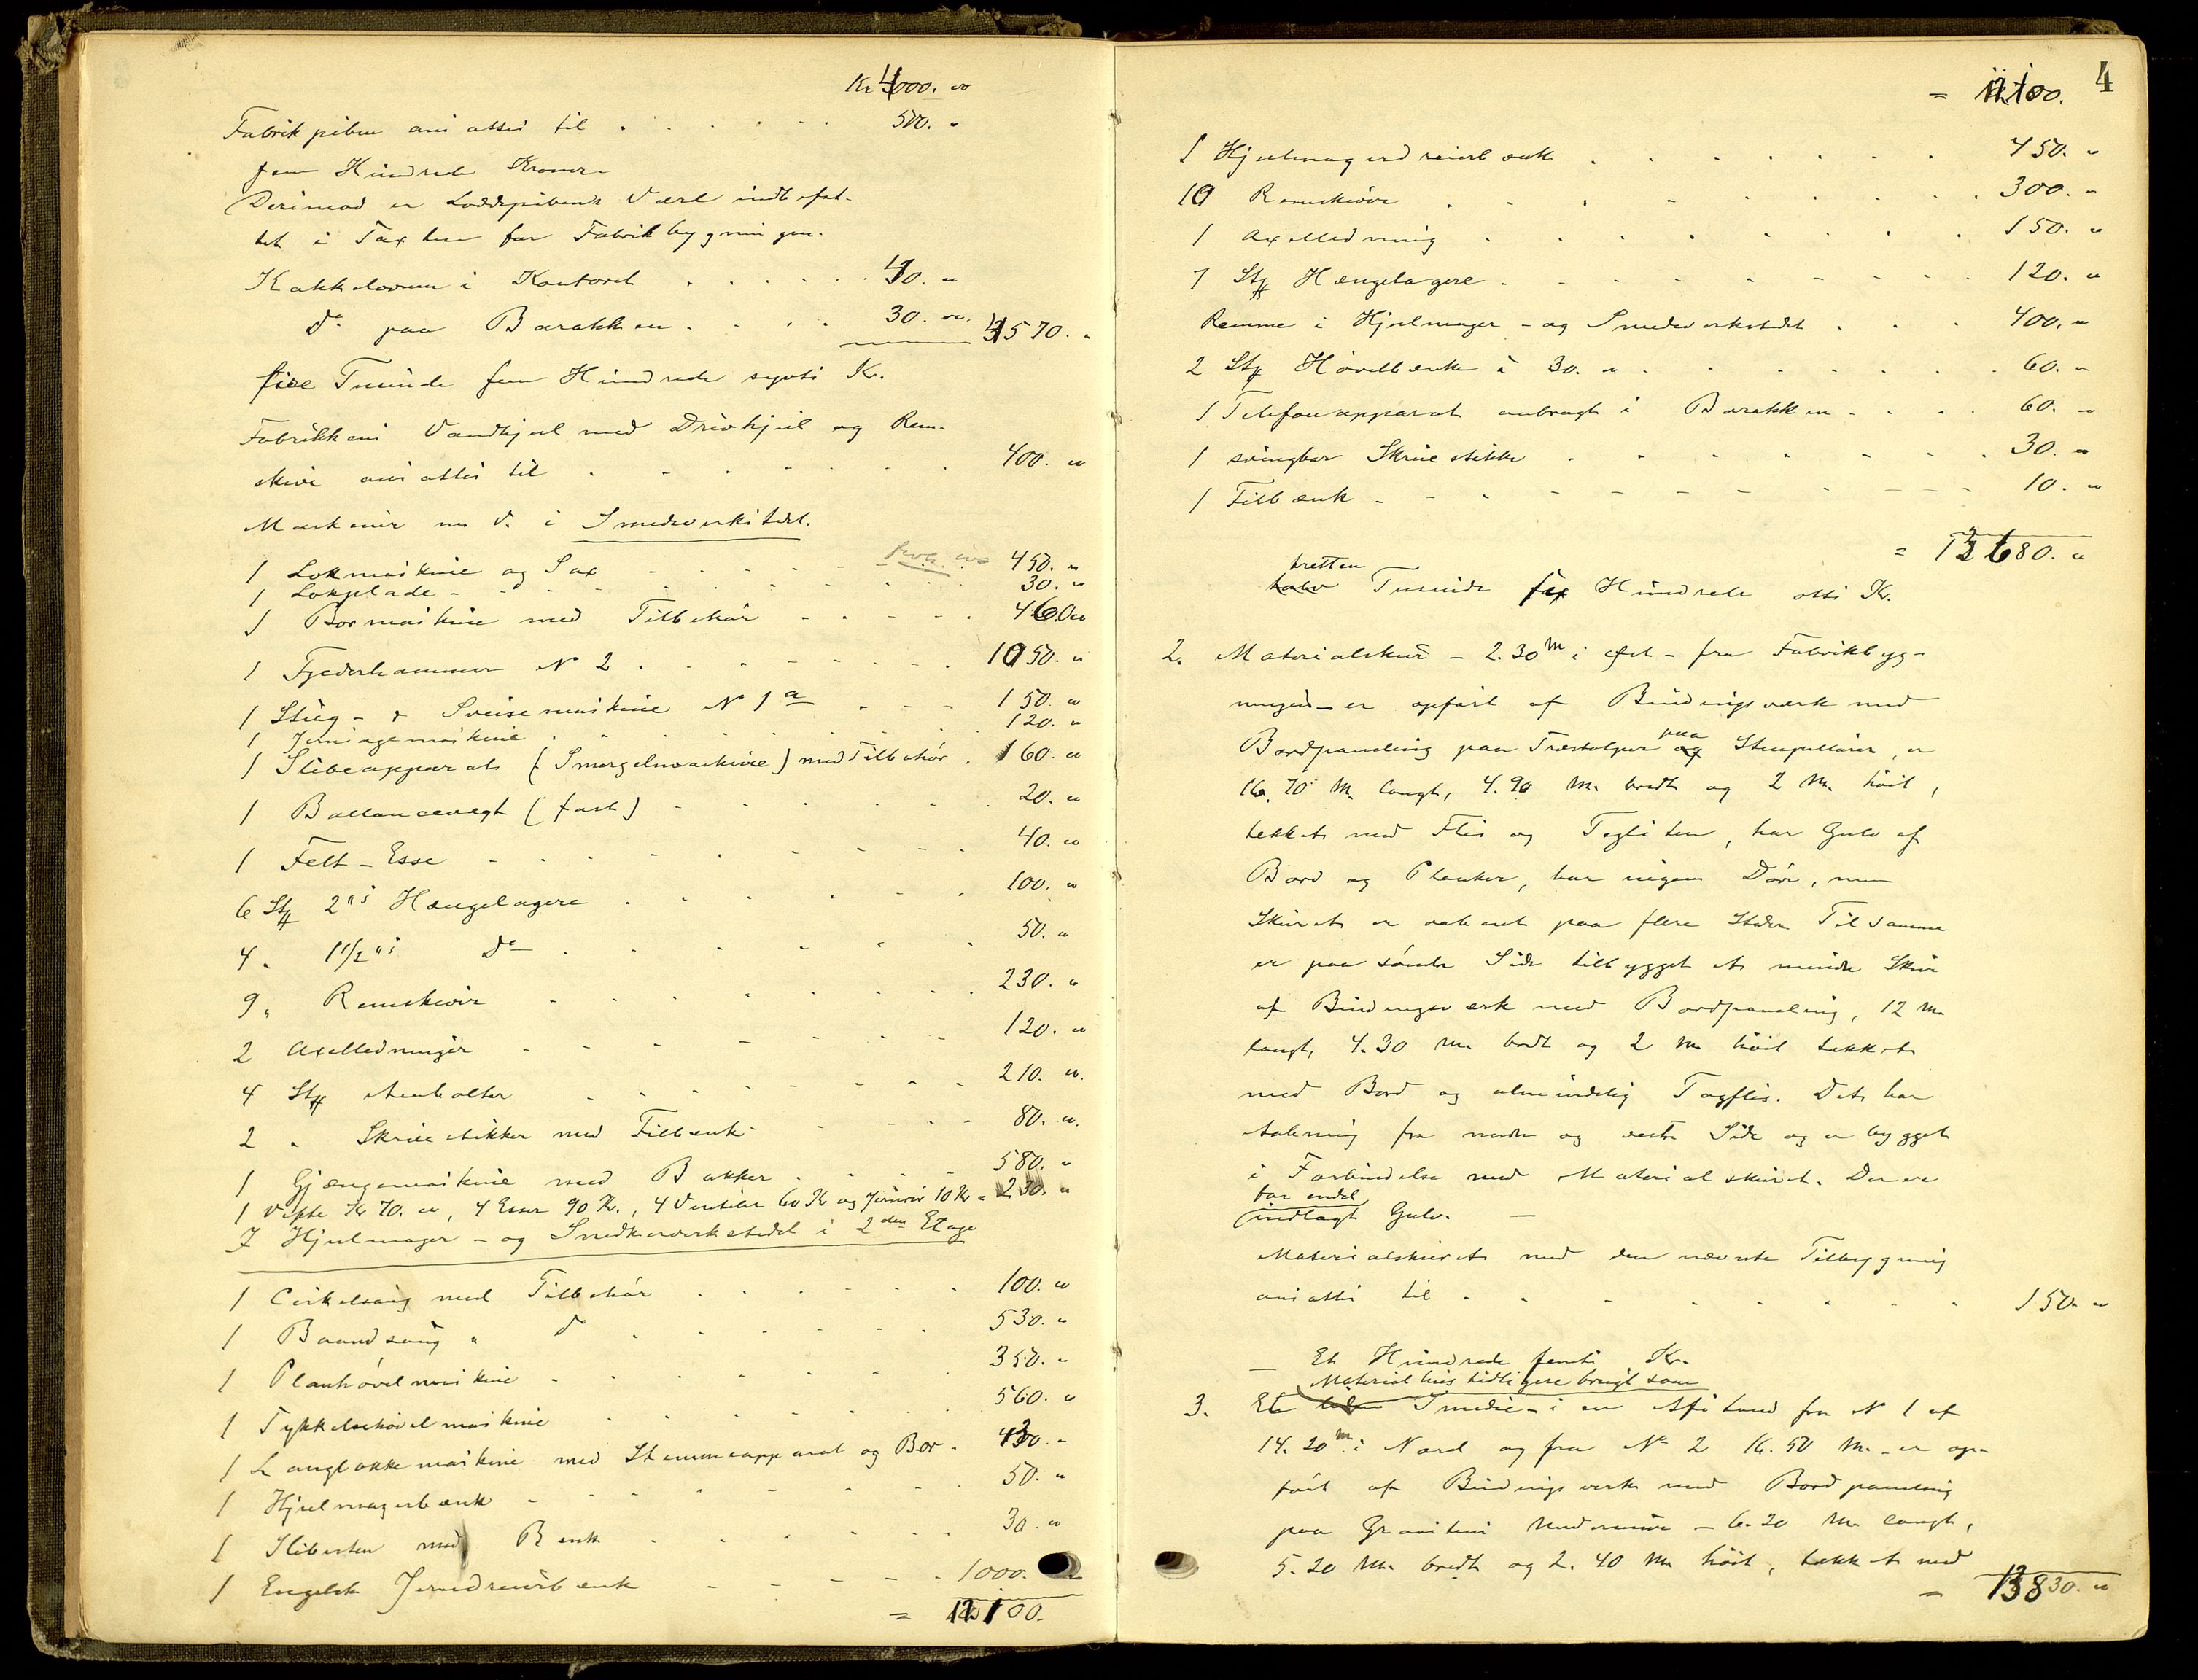 Kr 4000. "
Fabrikpiben ansattes til . . . . . . 500. "
fem Hundrede Kroner
Derimod er Loddepibens Værd indbefat-
tet i Taxten for Fabrikbygningen.
Kakkelovnen i Kontoret . . . . . 40. "
do paa Barakken . . . . 30. " 4570. "
fire Tusinde fem Hundrede sytti Kr.
Fabrikkens Vandhjul med Drivhjul og Rem-
skive ansattes til . . . . . . 400. "
Maskiner m. v. i Smedeverkstedet.
1 Lokmaskine og Sax . . . . 450. "
1 Lokplade . . . . . 30. "
1 Bormaskine med Tilbehør . . . . . 460. "
1 Fjederhammer No 2 . . . . . . . 1050. "
1 Stüg- & Sveisemaskine No 1 a . . . 150. "
1 . . . . . 120. "
1 Slibeapparat (Smergelmaskine) med Tilbehør . 160. "
1 Ballancevegt (fast) . . . . . 20. "
1 Felt-Esse . . . . . . . 40. "
6 Stk 2"s Hængelagere . . . . . 100. "
4 " 1 1/2"s do . . . . . 50. "
9 " Remskiver . . . . . . . 230. "
2 Axelledninger . . . . . . . 120. "
4 Stk Ambolter . . . . . . 210. "
2 " Skruestikker med Filbænk . . . . 80. "
1 Gjængemaskine med Bakker . . . . 580. "
1 Vifte Kr 70. ", 4 Esser 90 Kr., 4 Ventiler 60 Kr og Jernrør 10 Kr = 230. "
I Hjulmager- og Snedkerverkstedet i 2den Etage
1 Cirkelsaug med Tilbehør . . . . . 100. "
1 Baandsaug " do . . . . . 530. "
1 Planhøvelmaskine . . . . . . 350. "
1 Tykkelsehøvelmaskine . . . . . . 560. "
1 Langlokkemaskine med Stemmeapparat og Bor . 430. "
1 Hjulmagerbænk . . . . . . . 50. "
1 Slibesten med Benk . . . . . . 30. "
1 Engelsk Jerndreierbænk . . . . . 1000. "
= 12100.
4
= 12100.
1 Hjulmagerdreierbænk . . . . . . 450. "
10 Remskiver . . . . . . . . 300. "
1 Axelledning . . . . . . . 150. "
7 Stk Hængelagere . . . . . . . 120. "
Remme i Hjulmager- og Smedeverkstedet . . . 400. "
2 Stk Høvelbænke à 30. " . . . . . . 60. "
1 Telefonapparat anbragt i Barakken . . . 60. "
1 svingbar Skruestikke . . . . . . 30. "
1 Filbænk . . . . . . . . . 10. "
= 13680. "
tretten
tolv Tusinde sex Hundrede otti Kr.
2. Materialskur - 2.30 m i øst - fra Fabrikbyg-
ningen - er opført af Bindingsværk med
Bordpaneling paa Træstolper og paa Stenpillarer, er
16.70 M. langt, 4.90 M. bredt og 2 M. høit,
tekket med Flis og Teglsten, har Gulv af
Bord og Planker, har ingen Døre, men
Skuret er aabent paa flere Steder. Til samme
er paa søndre Side tilbygget et mindre Skur
af Bindingsverk med Bordpaneling, 12 M.
langt, 4.30 M. bredt og 2 M. høit tekket
med Bord og almindelig Tagflis. Det har
Aabning fra nordre og vestre Side og er bygget
i Forbindelse med Materialskuret. Der er
for endel
indlagt Gulv. -
Materialskuret med den nævnte Tilbygning
ansattes til . . . . . . . . 150. "
- Et Hundrede femti Kr.
Materialhus tidligere brugt som
3. Et Smedie - i en Afstand fra No 1 af
14.20 m. i Nord og fra No 2 16.50 M. - er op-
ført af Bindingsverk med Bordpaneling
paa Granitsten Undermur - 6.20 M. langt,
5.20 M. bredt og 2.40 M. høit, tekket med
= 13830. "